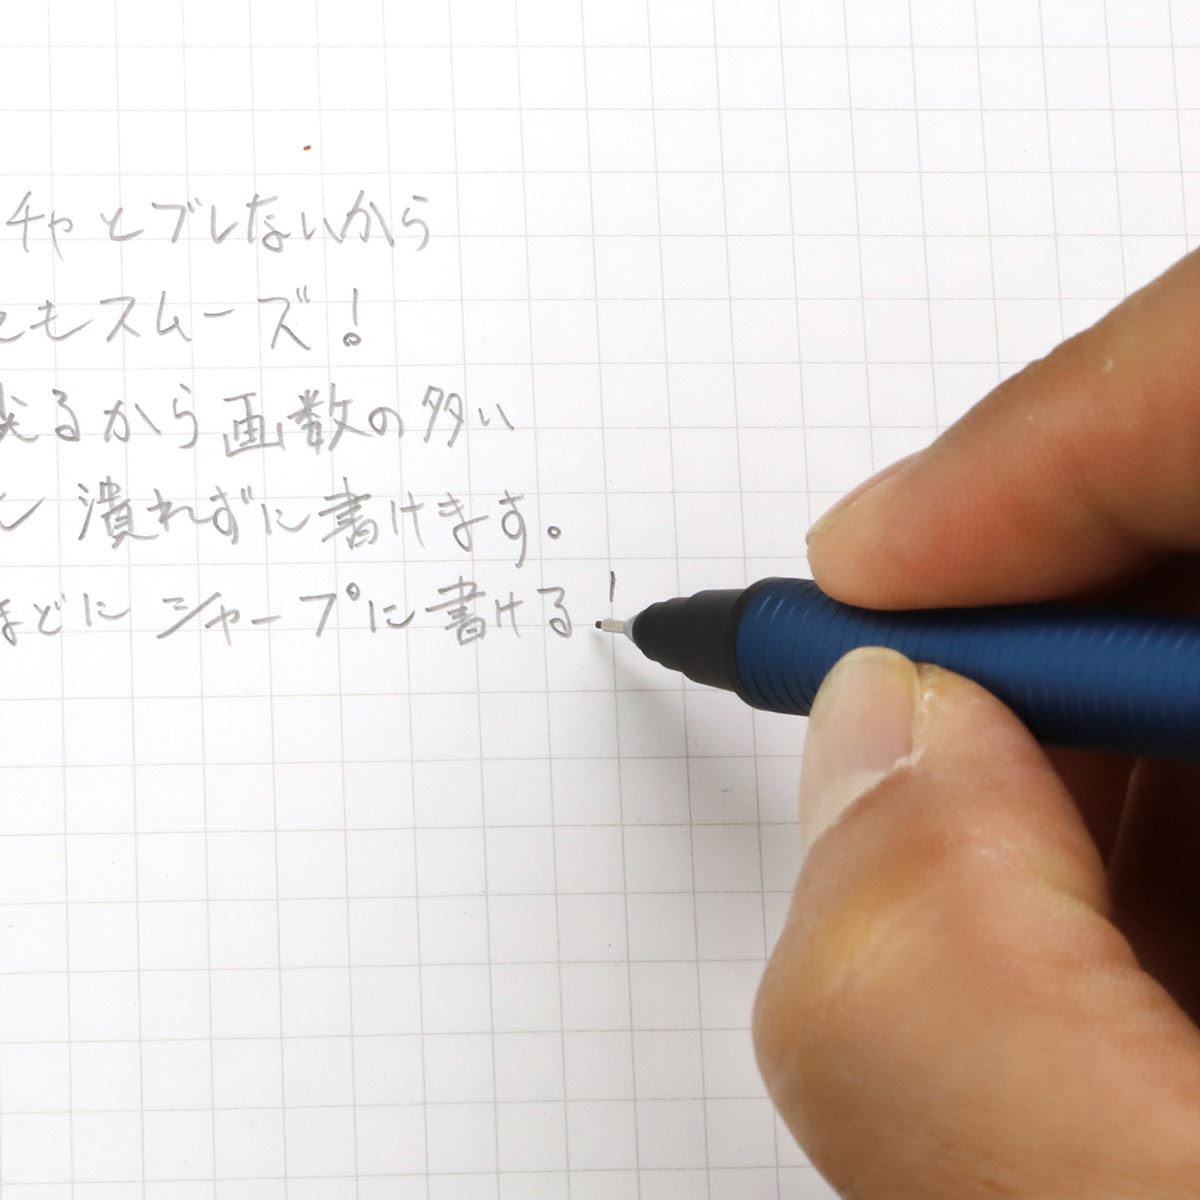 チャとブレないから
てもスムーズ!
尖るから画数の多い
も潰れずに書けます。
ほどにシャープに書ける!